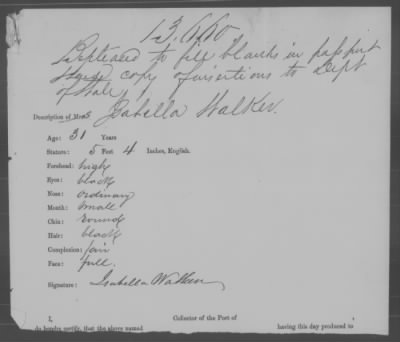 13,660
to fill blanks in passport
copy of insertions to Dept
of State
Description of Mrs Isabella Walker.
Age: 31 Years
Stature: 5 Feet 4 Inches, English.
Forehead: high
Eyes: black
Nose: ordinary
Mouth: small
Chin: round
Hair: black
Complexion: fair
Face: full.
Signature: Isabella Walker
I, Collector of the Port of
do hereby certify, that the above named having this day produced to